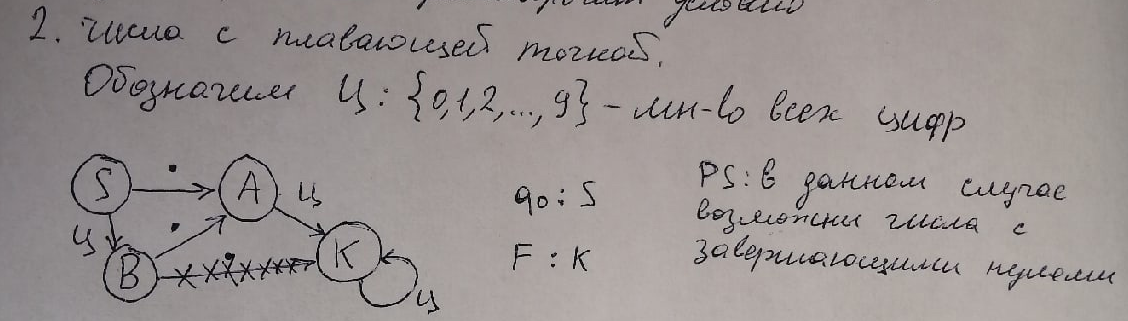 условию
2. числа с плавающей точкой.
Обозначим Ц: {0,1,2,...,9} - мн-во всех цифр
S . A Ц
q0 : S
PS: в данном случае
возможны числа с
завершающими нулями
Ц . B . K Ц
F : K